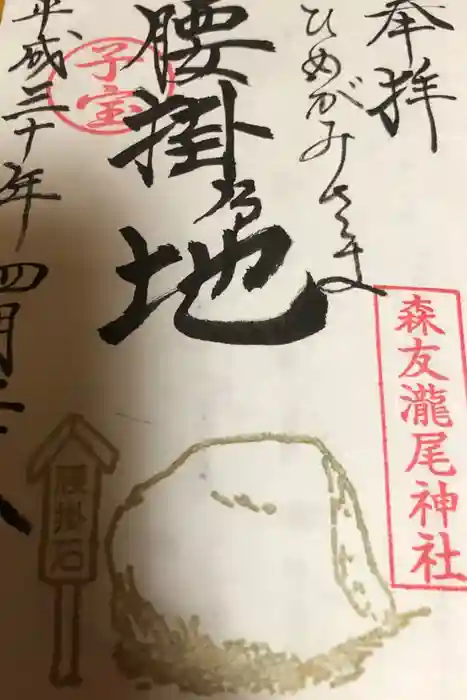 奉拝
ひめがみさま
腰掛乃地
子宝
平成三十年四月
森友瀧尾神社
腰掛石